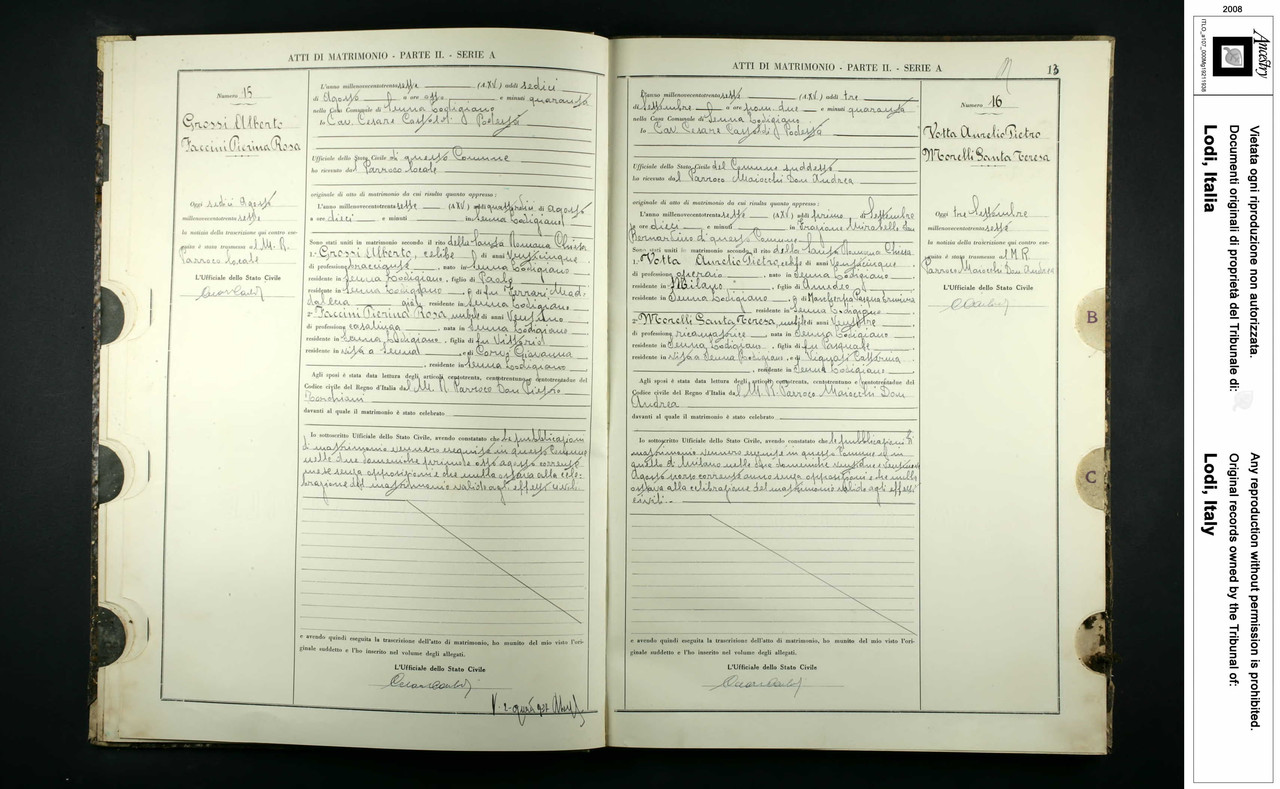 ATTI DI MATRIMONIO - PARTE II. - SERIE A
Numero 15
Grossi Alberto
Faccini Pierina Rosa
Oggi sedici Agosto
millenovecentotrentasette
la notizia della trascrizione qui contro ese-
guita è stata trasmessa al M. R.
Parroco locale
L'Ufficiale dello Stato Civile
L'anno millenovecentotrentasette (A.XV.) addì sedici
di Agosto a ore otto e minuti quaranta
nella Casa Comunale di Senna Lodigiano
Io Cav. Cesare Podestà
Ufficiale dello Stato Civile di questo Comune
ho ricevuto dal Parroco locale
originale di atto di matrimonio da cui risulta quanto appresso:
L'anno millenovecentotrentasette (A.XV.) addì quattordici di Agosto
a ore dieci e minuti in Senna Lodigiano
Sono stati uniti in matrimonio secondo il rito della Santa Romana Chiesa
1° Grossi Alberto, celibe di anni venticinque
di professione bracciante, nato in Senna Lodigiano
residente in Senna Lodigiano, figlio di Paolo
residente in Senna Lodigiano e di fu Ferrari Mad-
dalena già residente in Senna Lodigiano
2° Faccini Pierina Rosa, nubile di anni ventuno
di professione casalinga, nata in Senna Lodigiano
residente in Senna Lodigiano, figlia di fu Vittorio
residente in vita a Senna e di Giovanna
, residente in Senna Lodigiano
Agli sposi è stata data lettura degli articoli centotrenta, centotrentuno e centotrentadue del
Codice civile del Regno d'Italia dal M. R. Parroco Don Pietro
davanti al quale il matrimonio è stato celebrato
Io sottoscritto Ufficiale dello Stato Civile, avendo constatato che le pubblicazioni
di matrimonio vennero eseguite in questo Comune
nelle due domeniche primo e otto agosto corrente
mese senza opposizioni e che nulla ostava alla cele-
brazione del matrimonio valido agli effetti civili.
e avendo quindi eseguita la trascrizione dell'atto di matrimonio, ho munito del mio visto l'ori-
ginale suddetto e l'ho inserito nel volume degli allegati.
L'Ufficiale dello Stato Civile
ATTI DI MATRIMONIO - PARTE II. - SERIE A
13
L'anno millenovecentotrentasette (A.XV.) addì tre
di Settembre a ore pom. due e minuti quaranta
nella Casa Comunale di Senna Lodigiano
Io Cav. Cesare Podestà
Ufficiale dello Stato Civile del Comune suddetto
ho ricevuto dal Parroco Maiocchi Don Andrea
originale di atto di matrimonio da cui risulta quanto appresso:
L'anno millenovecentotrentasette (A.XV.) addì primo di Settembre
a ore dieci e minuti in Frazione Mirabello San
Bernardino di questo Comune
Sono stati uniti in matrimonio secondo il rito della Santa Romana Chiesa
1° Votta Aurelio Pietro, celibe di anni venticinque
di professione operaio, nato in Senna Lodigiano
residente in Milano, figlio di Amedeo
residente in Senna Lodigiano e di
, residente in Senna Lodigiano
2° Morelli Santa Teresa, nubile di anni ventitre
di professione ricamatrice, nata in Senna Lodigiano
residente in Senna Lodigiano, figlia di fu Pasquale
residente in vita a Senna Lodigiano, e di Vignati Catterina
, residente in Senna Lodigiano
Agli sposi è stata data lettura degli articoli centotrenta, centotrentuno e centotrentadue del
Codice civile del Regno d'Italia dal M. R. Parroco Maiocchi Don
Andrea
davanti al quale il matrimonio è stato celebrato
Io sottoscritto Ufficiale dello Stato Civile, avendo constatato che le pubblicazioni di
matrimonio vennero eseguite in questo Comune ed in
quello di Milano nelle due domeniche ventidue e ventinove
Agosto scorso corrente anno senza opposizioni e che nulla
ostava alla celebrazione del matrimonio valido agli effetti
civili.-
e avendo quindi eseguita la trascrizione dell'atto di matrimonio, ho munito del mio visto l'ori-
ginale suddetto e l'ho inserito nel volume degli allegati.
L'Ufficiale dello Stato Civile
Numero 16
Votta Aurelio Pietro
Morelli Santa Teresa
Oggi tre Settembre
millenovecentotrentasette
la notizia della trascrizione qui contro ese-
guita è stata trasmessa al M.R.
Parroco Maiocchi Don Andrea
L'Ufficiale dello Stato Civile
B
C
2008
Ancestry
Vietata ogni riproduzione non autorizzata.
Documenti originali di proprietà del Tribunale di:
Lodi, Italia
Any reproduction without permission is prohibited.
Original records owned by the Tribunal of:
Lodi, Italy